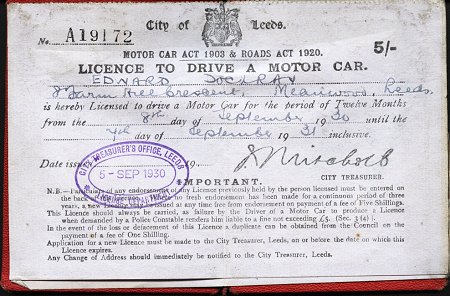 City of Leeds.
No. A19172
5/-
MOTOR CAR ACT 1903 & ROADS ACT 1920.
LICENCE TO DRIVE A MOTOR CAR.
EDWARD
Farm Hill Crescent, Meanwood, Leeds.
is hereby Licensed to drive a Motor Car for the period of Twelve Months
from the 8th day of September 1930 until the
7th day of September 1931 inclusive.
Date issued 19
CITY TREASURER'S OFFICE, LEEDS
5-SEP 1930
CITY TREASURER.
IMPORTANT.
N.B.— of any endorsement any Licence previously held by the person licensed must be entered on
the back no fresh endorsement has been made for a continuous period of three
years, a new at any time free from endorsement on payment of a fee of Five Shillings.
This Licence should always be carried, as failure by the Driver of a Motor Car to produce a Licence
when demanded by a Police Constable renders him liable to a fine not exceeding £5. (Sec. 3 (4) ).
In the event of the loss or defacement of this Licence a duplicate can be obtained from the Council on the
payment of a fee of One Shilling.
Application for a new Licence must be made to the City Treasurer, Leeds, on or before the date on which this
Licence expires.
Any Change of Address should immediately be notified to the City Treasurer, Leeds.